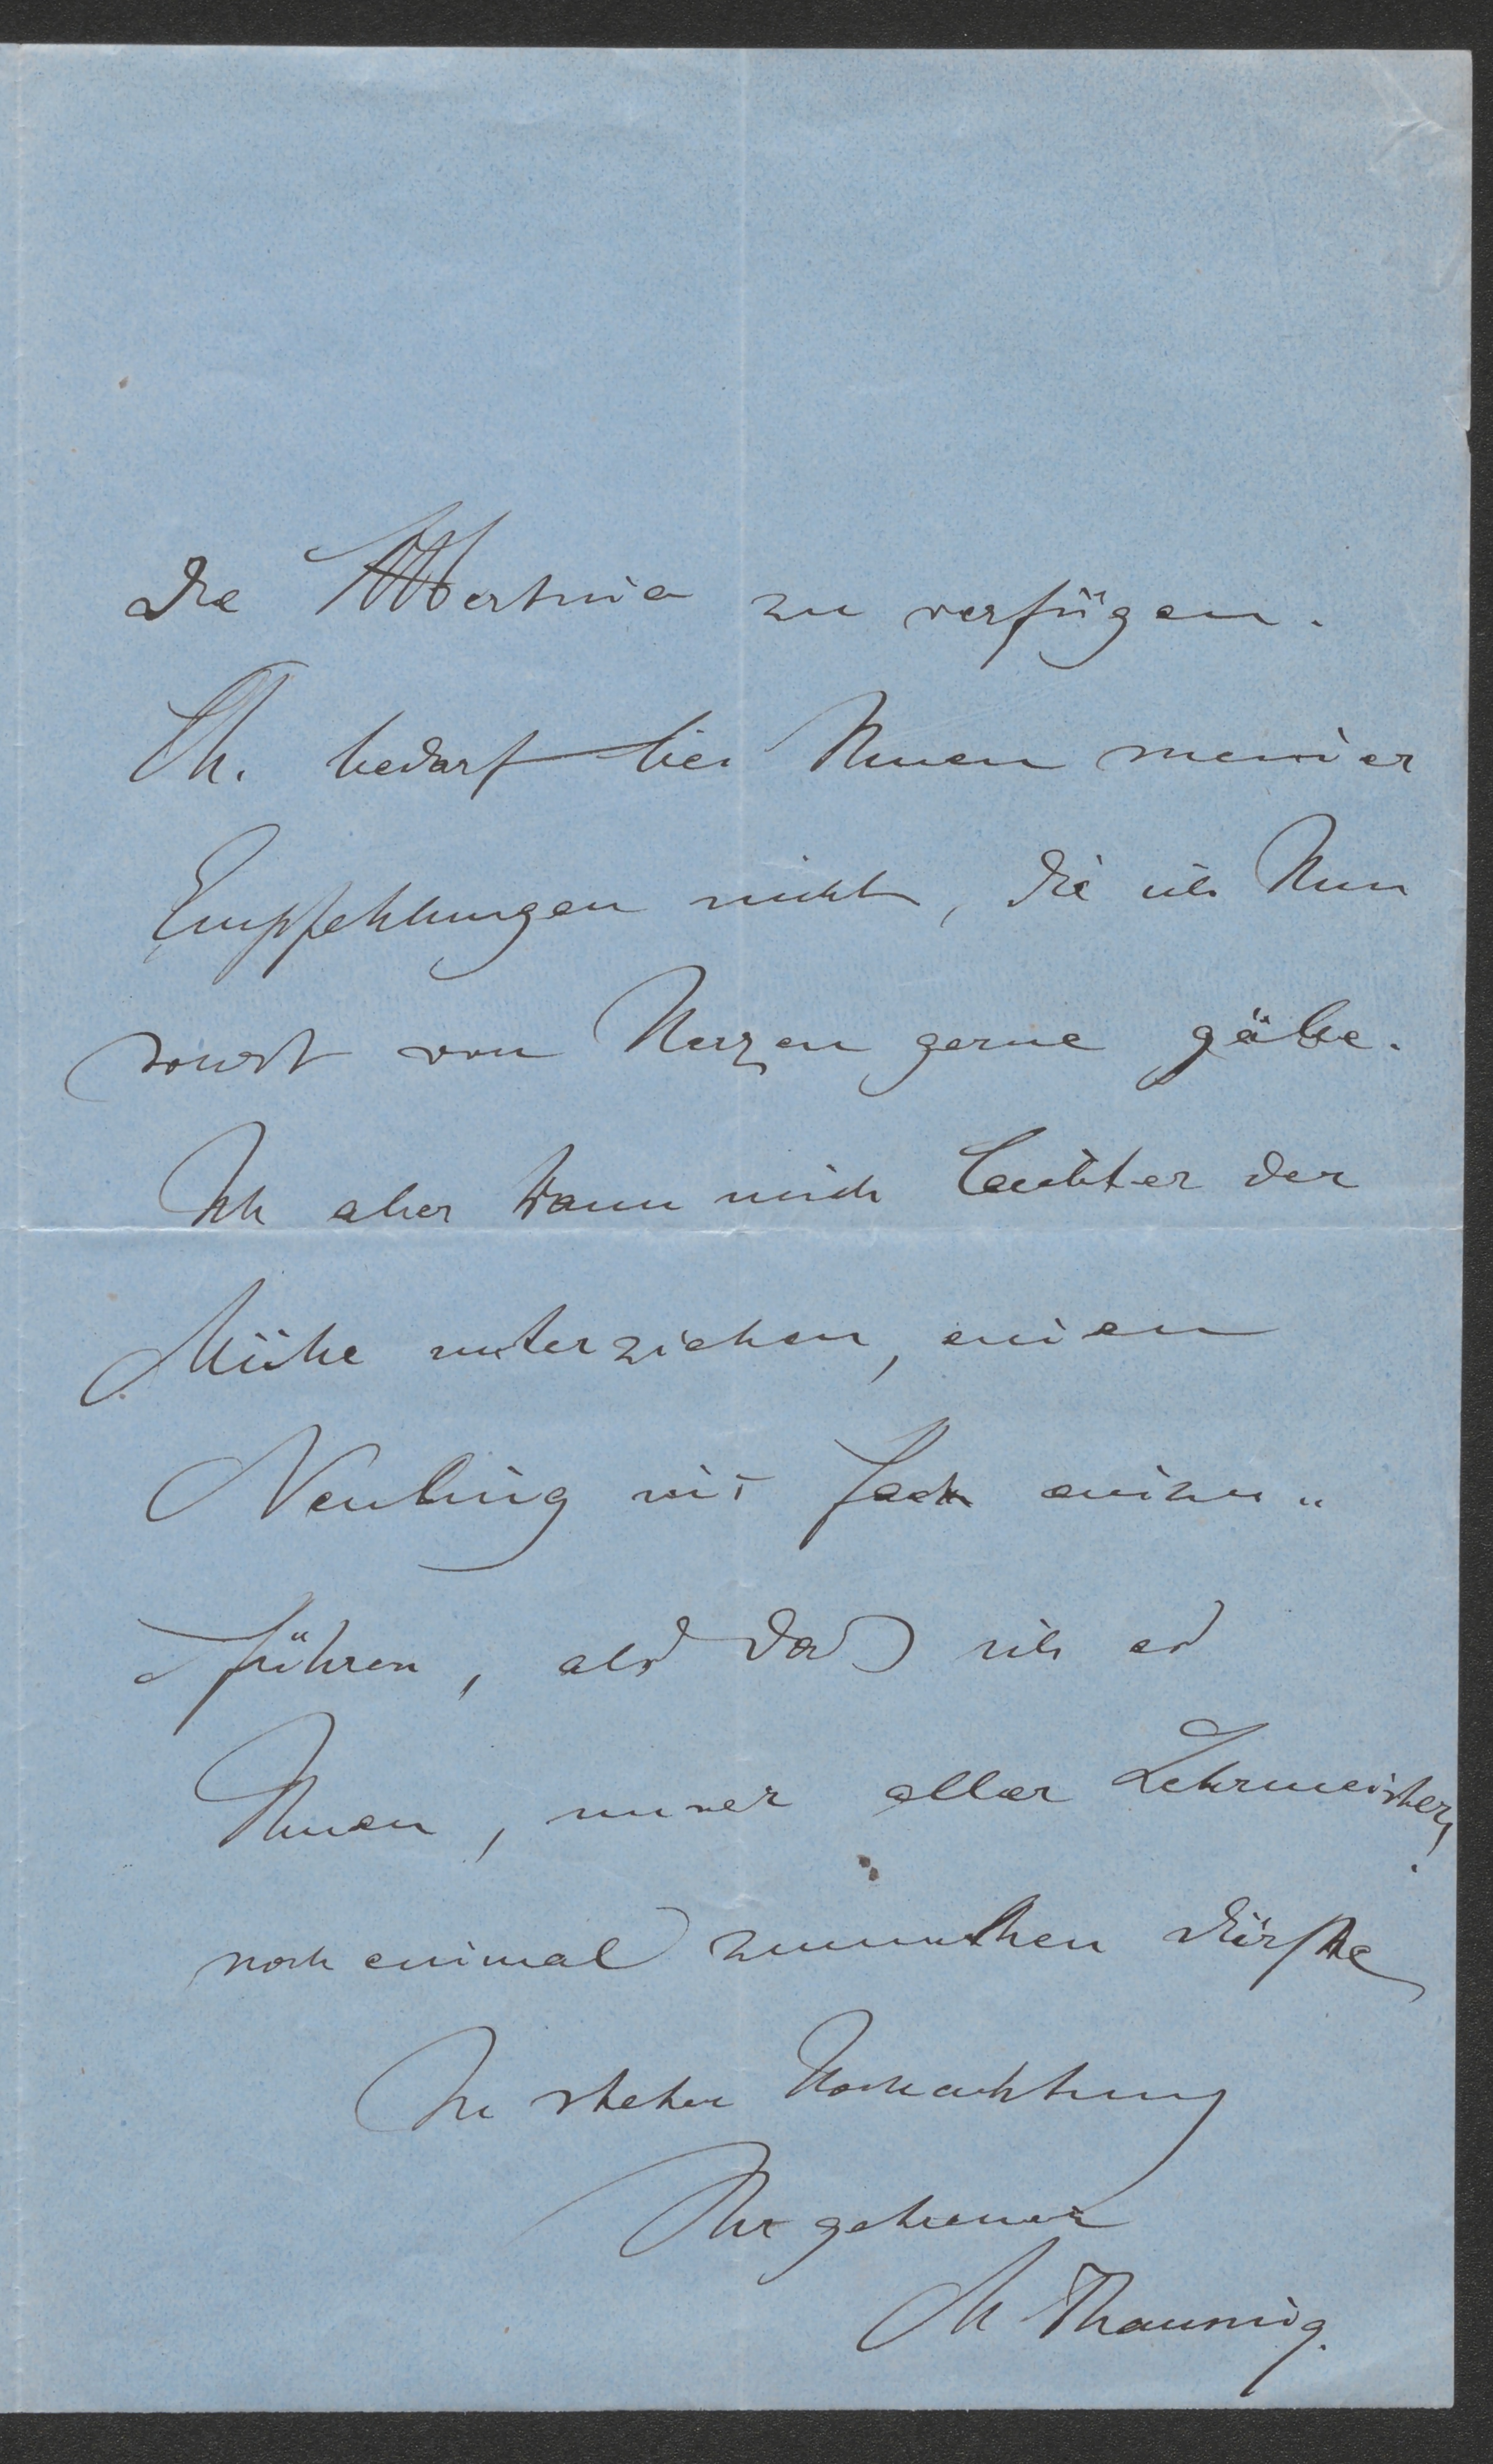 die Albertina zu verfügen.
Th. bedarf bei Ihnen meiner
Empfehlungen nicht, die ich Ihm
sonst von Herzen gerne gäbe.
Ich aber kann mich leichter der
Mühe unterziehen, einen
Neuling ins Fach einzu„
führen, als daß ich es
Ihnen, unser aller Lehrmeister,
noch einmal zumuthen dürfte
In steter Hochachtung
Ihr getreuer
M Thausing.